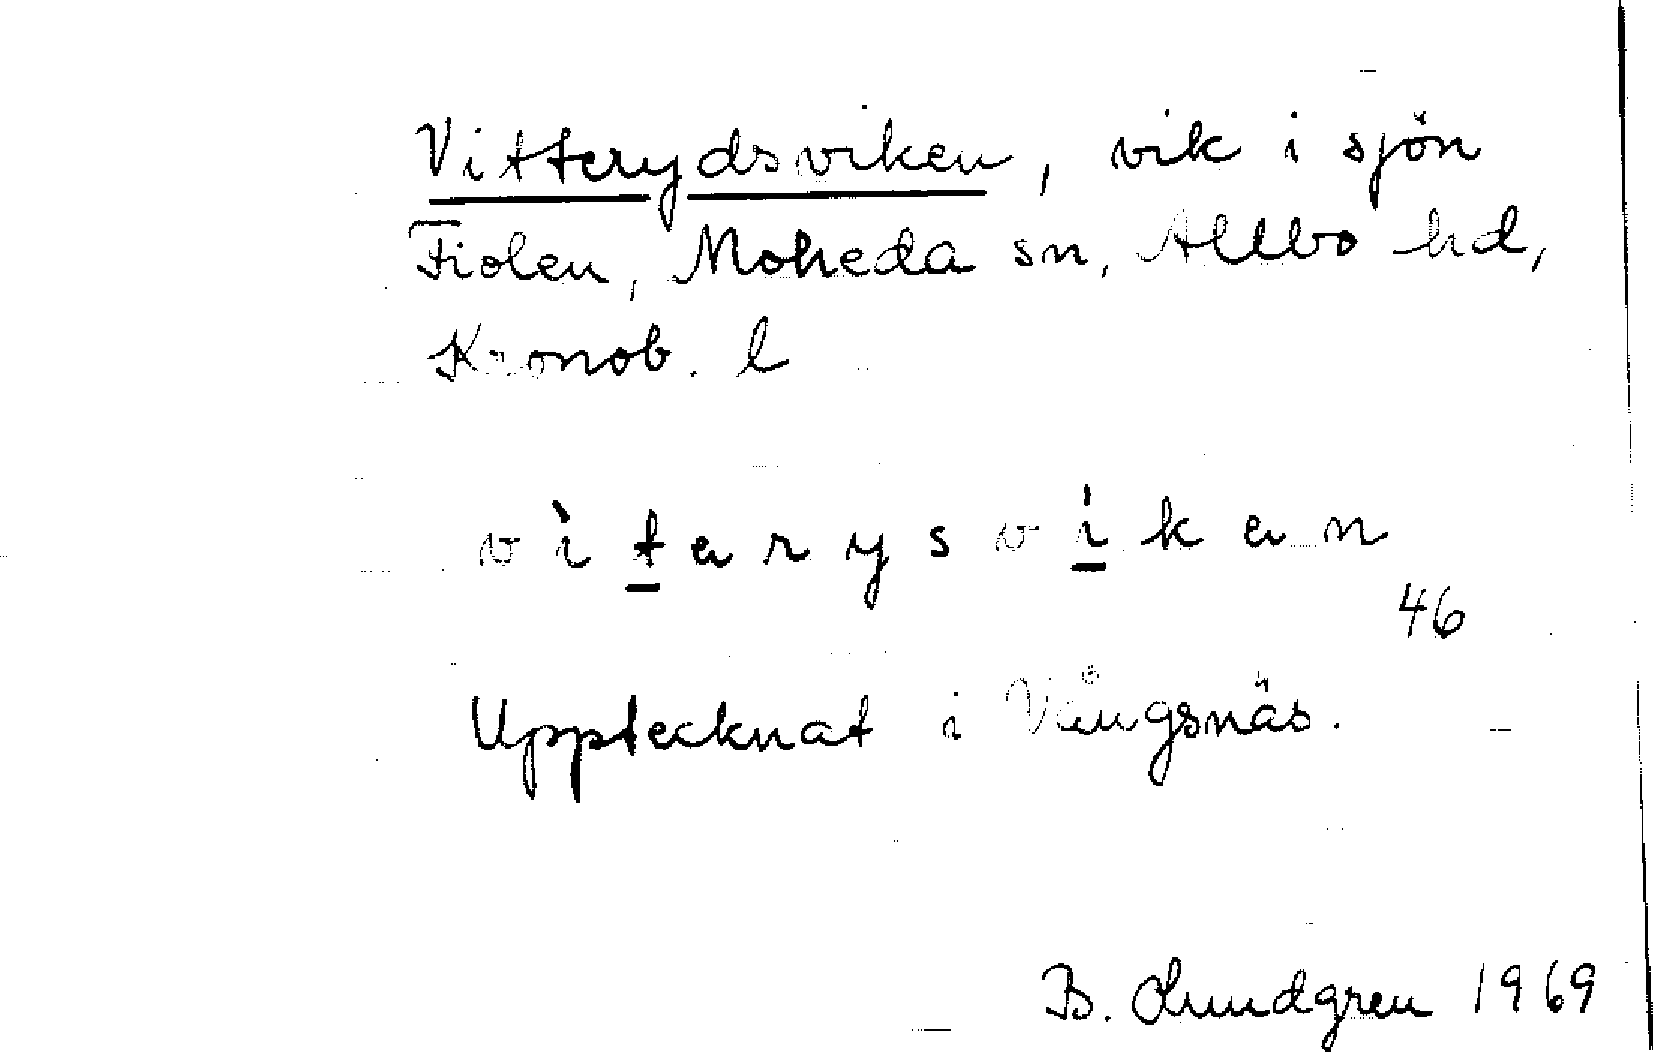 Vitterydsviken, vik i sjön
Fiolen, Moheda sn, Allbo hd,
Kronob. l
v ì t e r y s v í k e n
46
Upptecknat i Vångsnäs.
B. Lundgren 1969